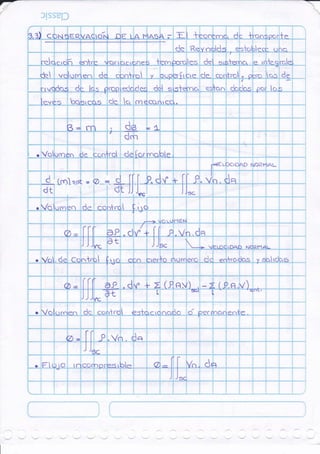 Classic
3.3) CONSERVACIÓN DE LA MASA : El teorema de transporte
de Reynolds, establece una
relación entre variaciones temporales del sistema e integrales
del volumen de control y superficie de control, pero las de
rivadas de las propiedades del sistema están dadas por las
leyes básicas de la mecánica.
B = m ; dB/dm = 1
• Volumen de control deformable.
VELOCIDAD NORMAL
d/dt (m)sist = 0 = d/dt ∭vc ρ.dv + ∬sc ρ.Vn.dA
• Volumen de control fijo
VOLUMEN
0 = ∭vc ∂ρ/∂t .dv + ∬sc ρ.Vn.dA
VELOCIDAD NORMAL
• Vol de Control fijo con cierto numero de entradas y salidas
0 = ∭vc ∂ρ/∂t .dv + Σ(ρAV)sal - Σ(ρ.A.V)ent.
• Volumen de control estacionado ó permanente.
0 = ∬sc ρ.Vn.dA
• Flujo incompresible 0 = ∬sc Vn.dA